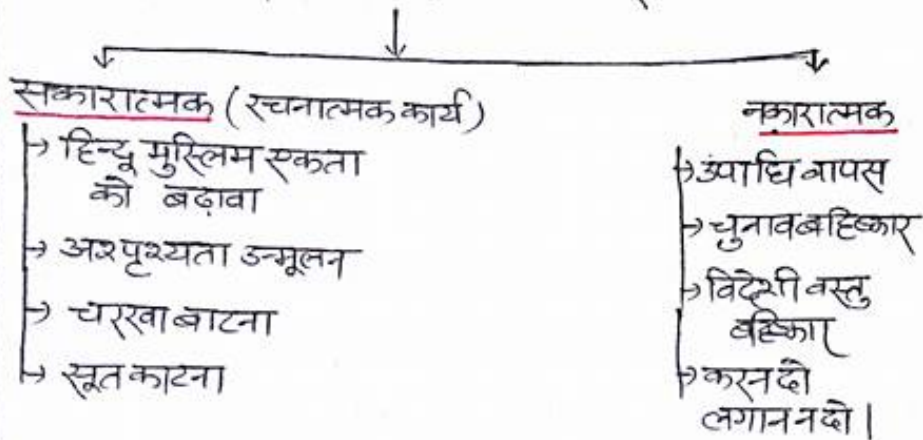 सकारात्मक (रचनात्मक कार्य)
→ हिन्दू मुस्लिम एकता
को बढ़ावा
→ अश्पृश्यता उन्मूलन
→ चरखा बाटना
→ सूत काटना
नकारात्मक
→ उपाधि वापस
→ चुनाव बहिष्कार
→ विदेशी वस्तु
बहिष्कार
→ कर न दो
लगान न दो।